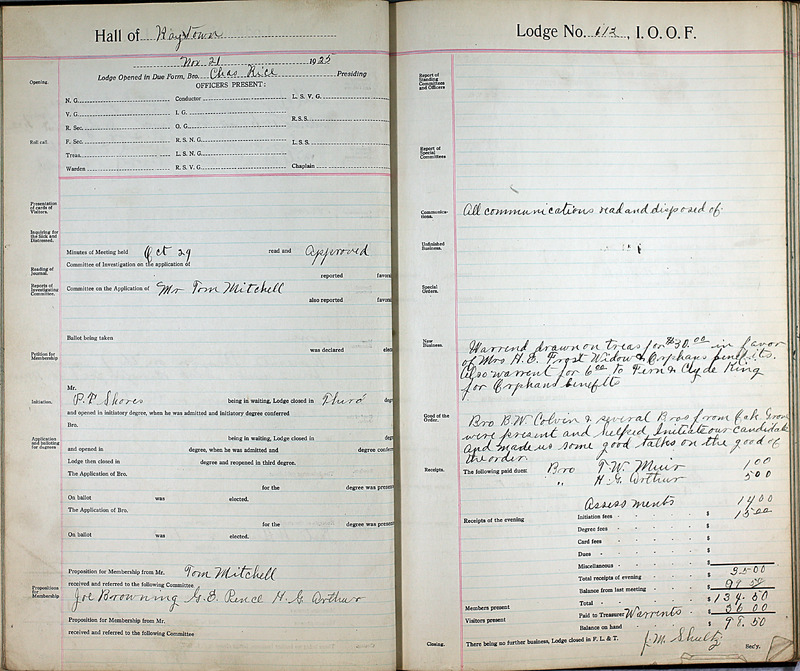 Hall of Raytown
Nov. 21 1925
Lodge Opened in Due Form, Bro. Chas Rice Presiding
Opening.
OFFICERS PRESENT:
N. G. Conductor L. S. V. G.
V. G. I. G. R.S.S.
R. Sec. O. G.
Roll call.
F. Sec. R. S. N. G. L.S.S.
Treas. L. S. N. G.
Warden R. S. V. G. Chaplain
Presentation of cards of Visitors.
Inquiring for the Sick and Distressed.
Minutes of Meeting held Oct 29 read and Approved
Reading of Journal.
Committee of Investigation on the application of
reported favora
Reports of Investigating Committee.
Committee on the Application of Mr Tom Mitchell
also reported favora
Ballot being taken
was declared elec
Petition for Membership
Mr.
Initiation.
P. F. Shores being in waiting, Lodge closed in Third degr
and opened in initiatory degree, when he was admitted and initiatory degree conferred
Bro.
being in waiting, Lodge closed in degr
Application and balloting for degrees
and opened in degree, when he was admitted and degree confer
Lodge then closed in degree and reopened in third degree.
The Application of Bro.
for the degree was presen
On ballot was elected.
The Application of Bro.
for the degree was presen
On ballot was elected.
Proposition for Membership from Mr. Tom Mitchell
received and referred to the following Committee
Propositions for Membership
Joe Browning G. E. Pence H. G. Arthur
Proposition for Membership from Mr.
received and referred to the following Committee
Lodge No. 612, I. O. O. F.
Report of Standing Committees and Officers
Report of Special Committees
Communications.
All communications read and disposed of
Unfinished Business.
Special Orders.
New Business.
Warrend drawn on treas for $30.00 in favor
of Mrs H. E. Frost Widow & Orphans benefits.
Also warrent for 6 00 To Fern & Clyde King
for Orphans benefits
Good of the Order.
Bro B. W. Colvin & several Bros from Oak Grov
were present and helped Initiate our candidate
and made us some good talks on the good of
the order.
Receipts.
The following paid dues: Bro T. W. Muir 1 00
" H. G. Arthur 5 00
Assessments 14 00
Receipts of the evening
Initiation fees $ 15 00
Degree fees $
Card fees $
Dues $
Miscellaneous $
Total receipts of evening $ 35 00
Balance from last meeting $ 99 50
Total $ 134.50
Members present
Paid to Treasurer Warrents $ 36 00
Visitors present
Balance on hand $ 98.50
Closing.
There being no further business, Lodge closed in F. L. & T. J. M. Shultz Sec'y.